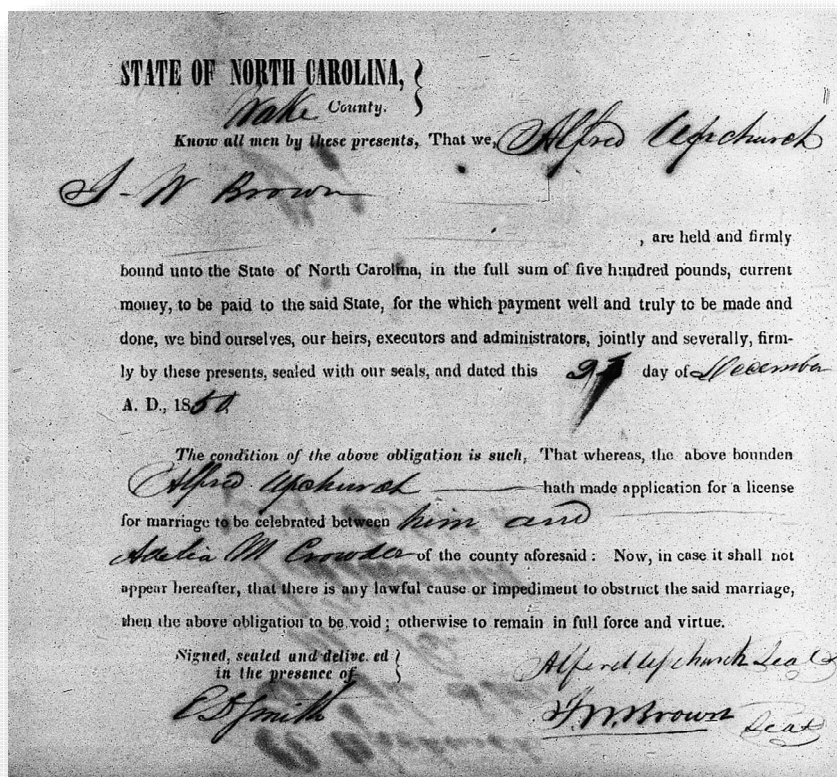 STATE OF NORTH CAROLINA, }
Wake County.
Know all men by these presents, That we, Alfred Upchurch
W Brown
, are held and firmly
bound unto the State of North Carolina, in the full sum of five hundred pounds, current
money, to be paid to the said State, for the which payment well and truly to be made and
done, we bind ourselves, our heirs, executors and administrators, jointly and severally, firm-
ly by these presents, sealed with our seals, and dated this day of December
A. D., 1850
The condition of the above obligation is such, That whereas, the above bounden
Alfred Upchurch hath made application for a license
for marriage to be celebrated between him and
Adelia M Crowder of the county aforesaid : Now, in case it shall not
appear hereafter, that there is any lawful cause or impediment to obstruct the said marriage,
then the above obligation to be void ; otherwise to remain in full force and virtue.
Signed, sealed and delive.ed }
in the presence of
Alfred Upchurch Seal
E D Smith
W. Brown Seal